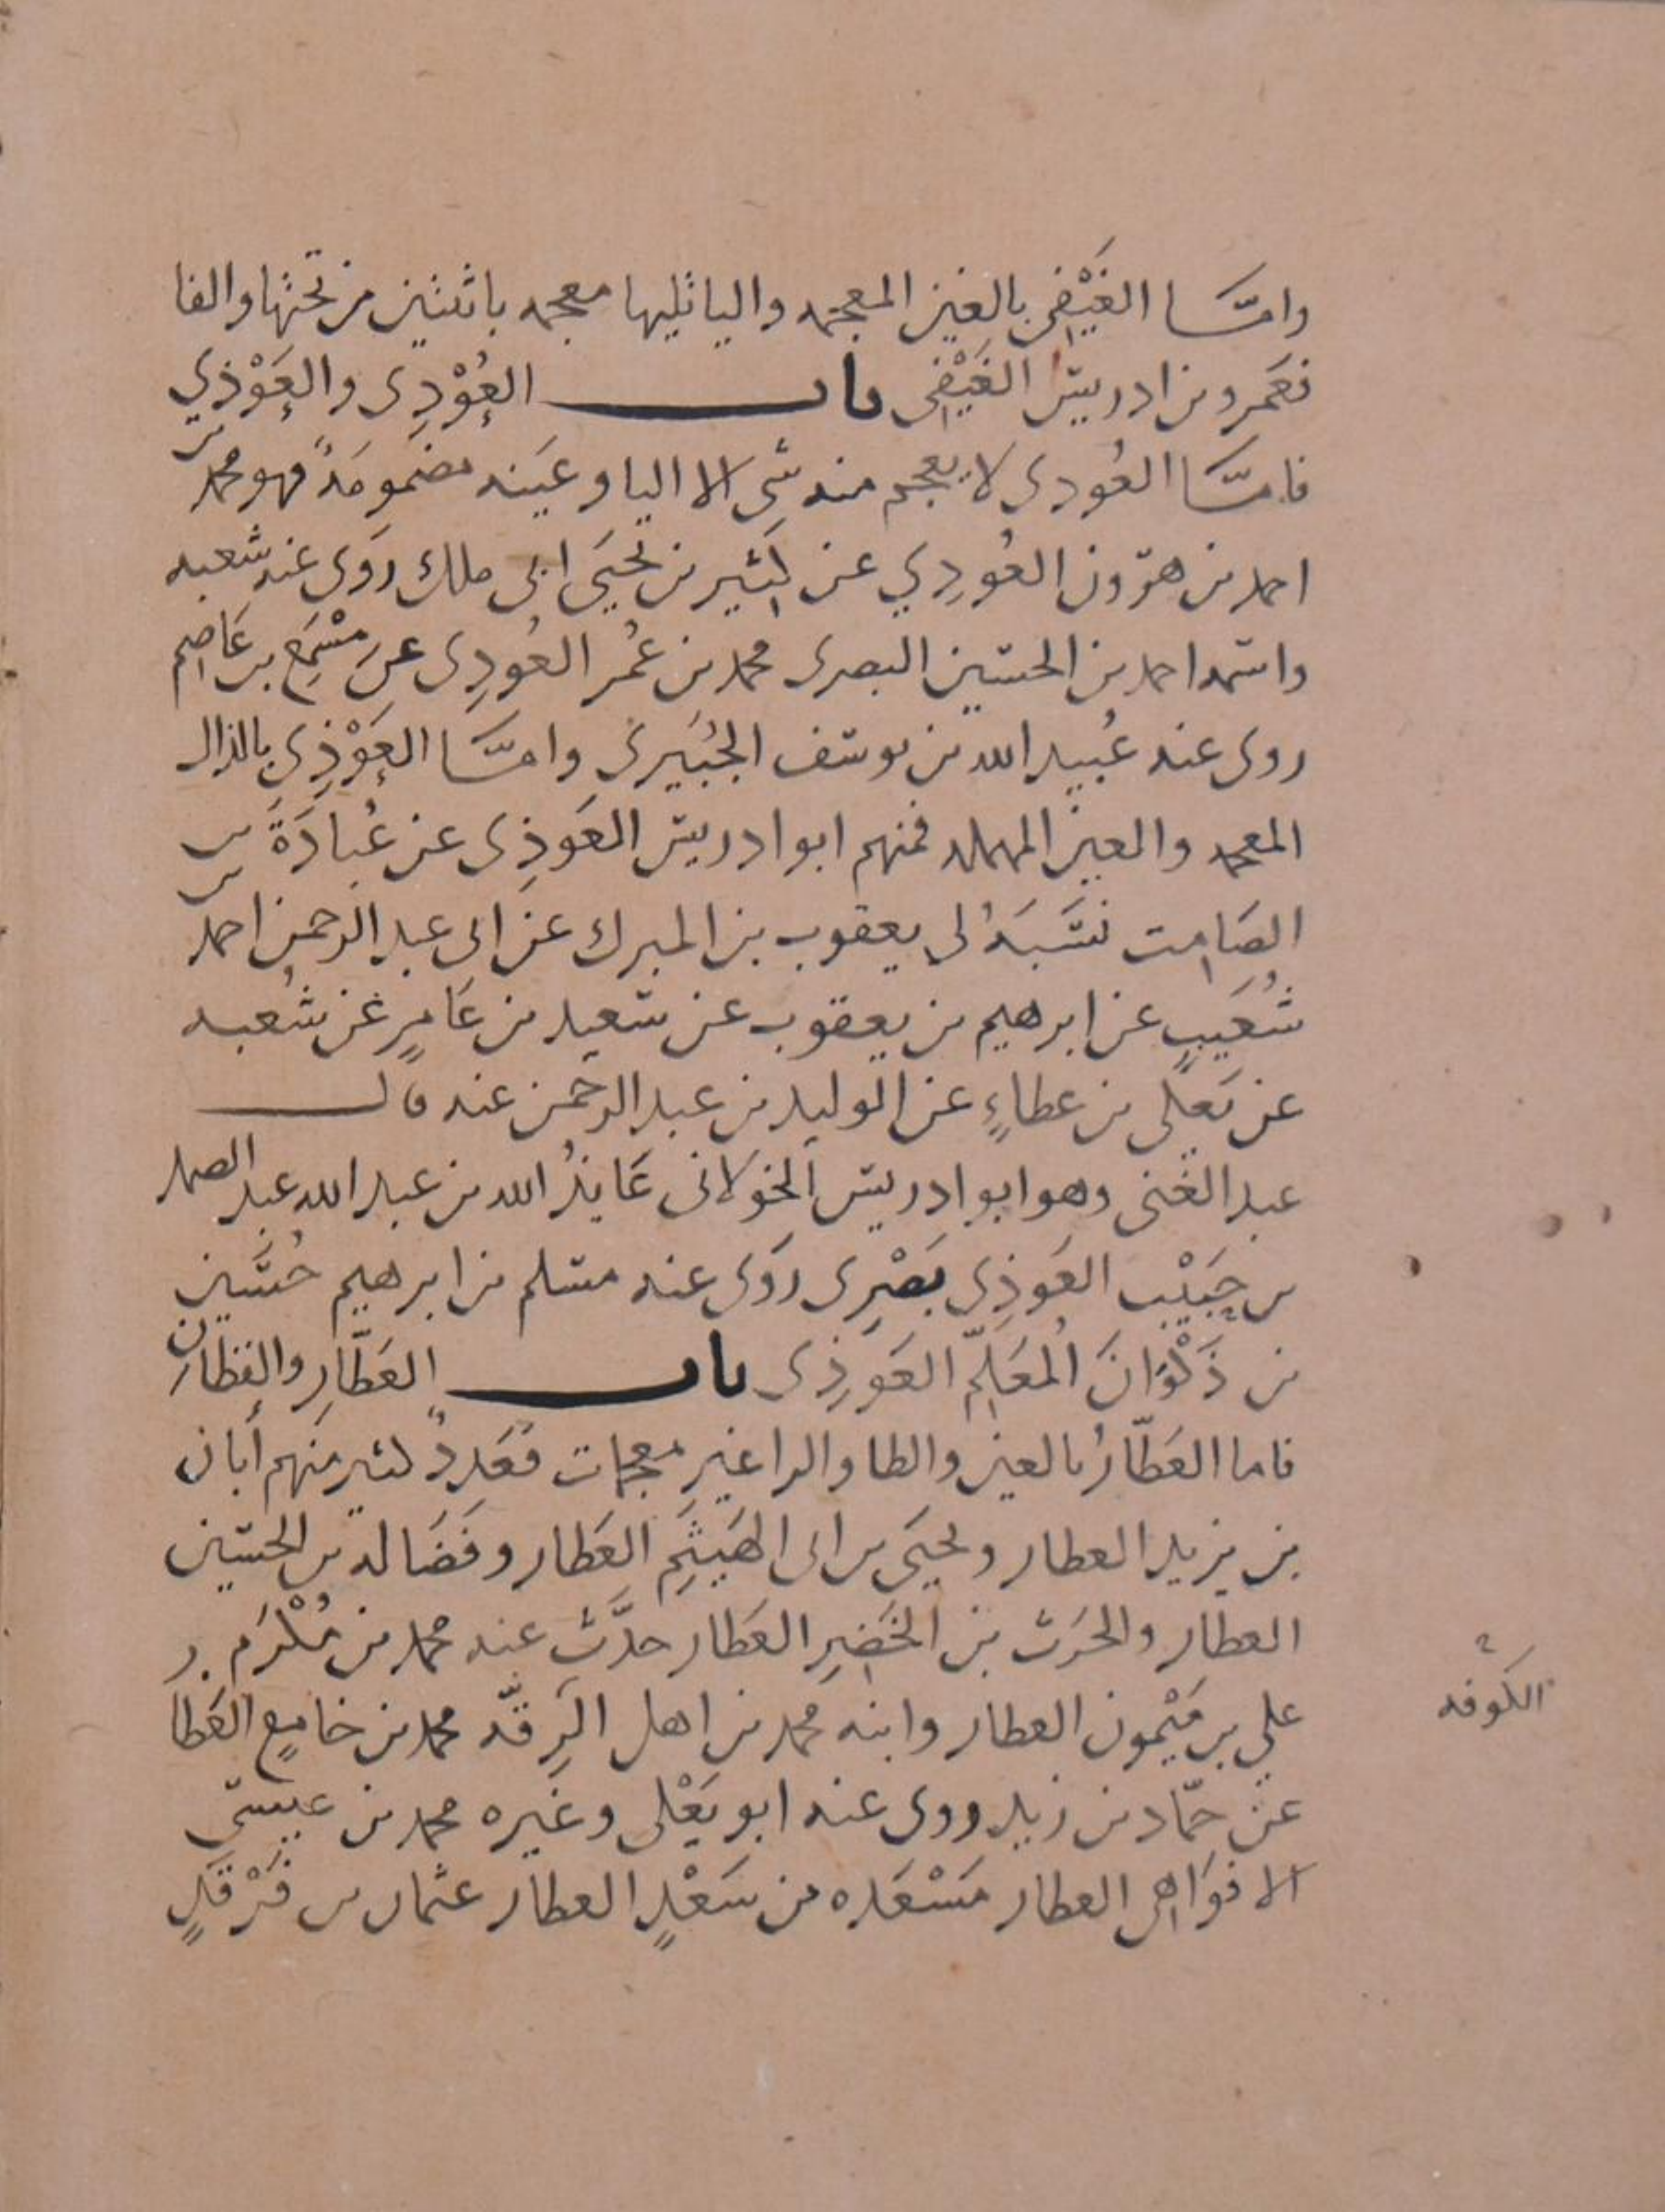 وامّا الغَيْفي بالغين المعجمه واليا تليها معجمه باثنتين من تحتها والفا
فعمرو بن ادريس الغَيْفي باب العُوْدِى والعَوْذي
فامّا العُودى لا يعجم منه شى الا اليا وعينه مضمومَةٌ فهو محمد بن
احمد بن هرون العُودِي عن كثير بن يحيَى ابى ملك روَى عنه شعبه
واسمه احمد بن الحسين البصرى محمد بن عُمر العُودِى عن مِسْمَعِ بن عَاصِم
روى عنه عُبيد الله بن يوسف الجُبَيرى وامّا العَوْذِى بالذال
المعجمه والعين المهمله فمنهم ابو ادريس العَوذِى عن عُبادَةَ بن
الصَامِت نسَبَهُ لى يعقوب بن المبرك عن ابى عبد الرحمن احمد بن
شُعَيبٍ عن ابرهيم بن يعقوب عن سعيد بن عَامرٍ عن شعبه
عن يَعلَى بن عطاءٍ عن الوليد بن عبد الرحمن عنه قال
عبد الغنى وهو ابو ادريس الخولانى عَايذُ الله بن عبد الله عبد الصمد
بن حَبيْب العَوذِى بَصْرِى روَى عنه مسلم بن ابرهيم حُسَين
بن ذَكْوَانَ المُعَلِّم العَوذِى باب العَطّارِ والقطّانِ
فاما العَطّارُ بالعين والطا والرا غير معجمات فعَددٌ كثير منهم أبان
بن يزيد العطار ويحيَى بن ابى الهَيثَمِ العَطار وفَضَاله بن الحسين
العطار والحرَث بن الخَضِرِ العَطار حدَّث عنه محمد بن مُكْرَم
علي بن مَيْمون العطار وابنه محمد من اهل الرقّه محمد بن جامعٍ العَطا
عن حمّاد بن زيد روى عنه ابو يَعْلى وغيره محمد بن عيسى
الافوَاهى العطار مَسْعَده بن سَعْدٍ العطار عثمان بن فَرْقَدٍ
الكوفه